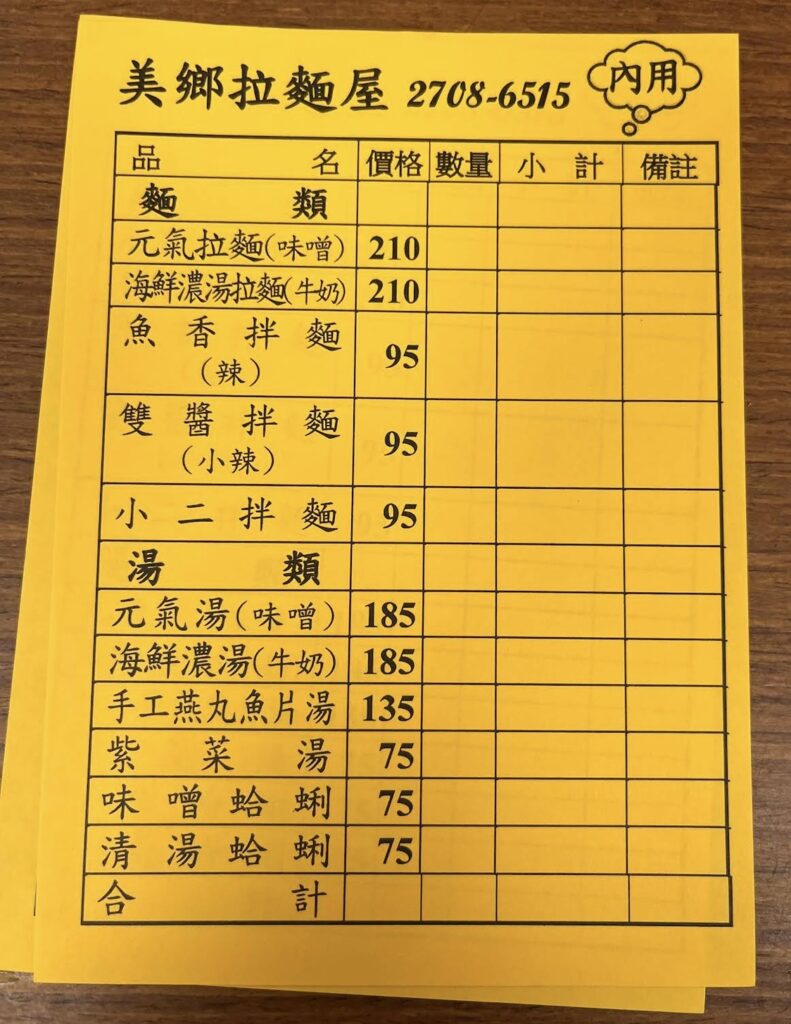 美鄉拉麵屋 2708-6515 內用
品名 價格 數量 小計 備註
麵類
元氣拉麵(味噌) 210
海鮮濃湯拉麵(牛奶) 210
魚香拌麵
(辣) 95
雙醬拌麵
(小辣) 95
小二拌麵 95
湯類
元氣湯(味噌) 185
海鮮濃湯(牛奶) 185
手工燕丸魚片湯 135
紫菜湯 75
味噌蛤蜊 75
清湯蛤蜊 75
合計